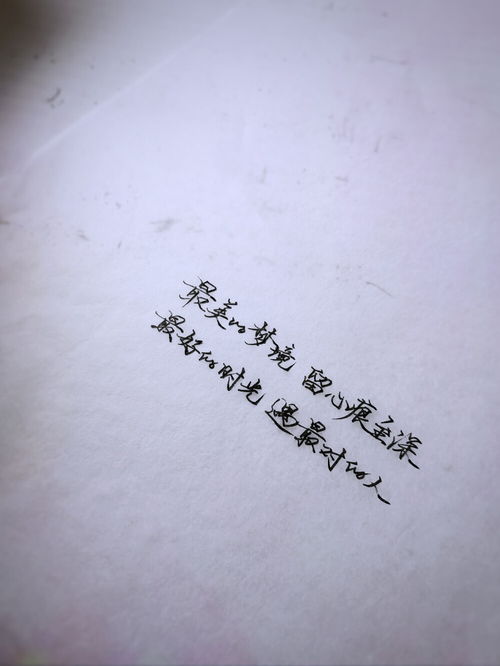 最美的梦境 留心痕至深
最好的时光 遇最对的人